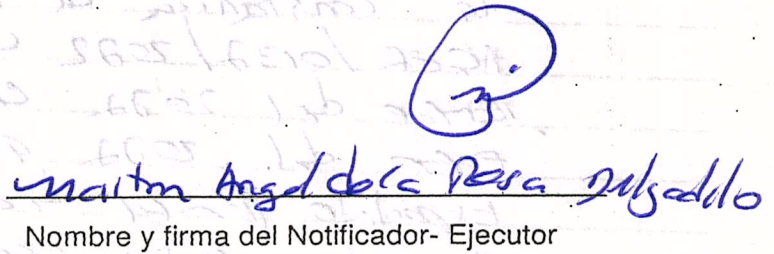 Martin Angel de la Rosa Delgadillo
Nombre y firma del Notificador- Ejecutor